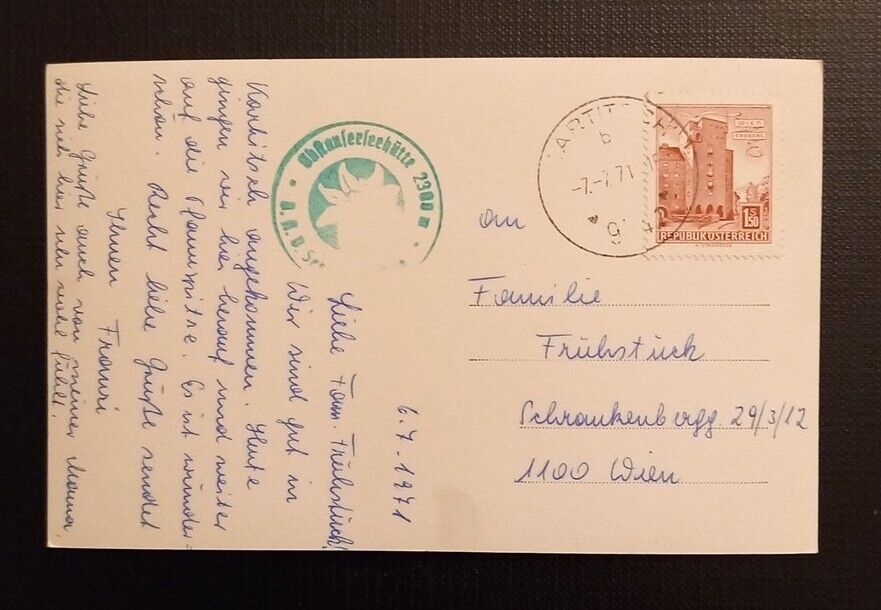 6.7.1971
Liebe Fam. Frühstück!
Wir sind gut in
Kartitsch angekommen. Heute
gingen wir hier herauf und weiter
auf die Pfannspitze. Es ist wunder-
schön. Recht liebe Grüße sendet
Ihnen Franzi
Liebe Grüße auch von meiner Mama.
die sich hier sehr wohl fühlt.
Obstanserseehütte 2300 m
KARTITSCH
b
-7.-7.71
WIEN
ERDBERG
S
1.50
REPUBLIK ÖSTERREICH
an
Familie
Frühstück
Schrankenbergg 29/3/12
1100 Wien